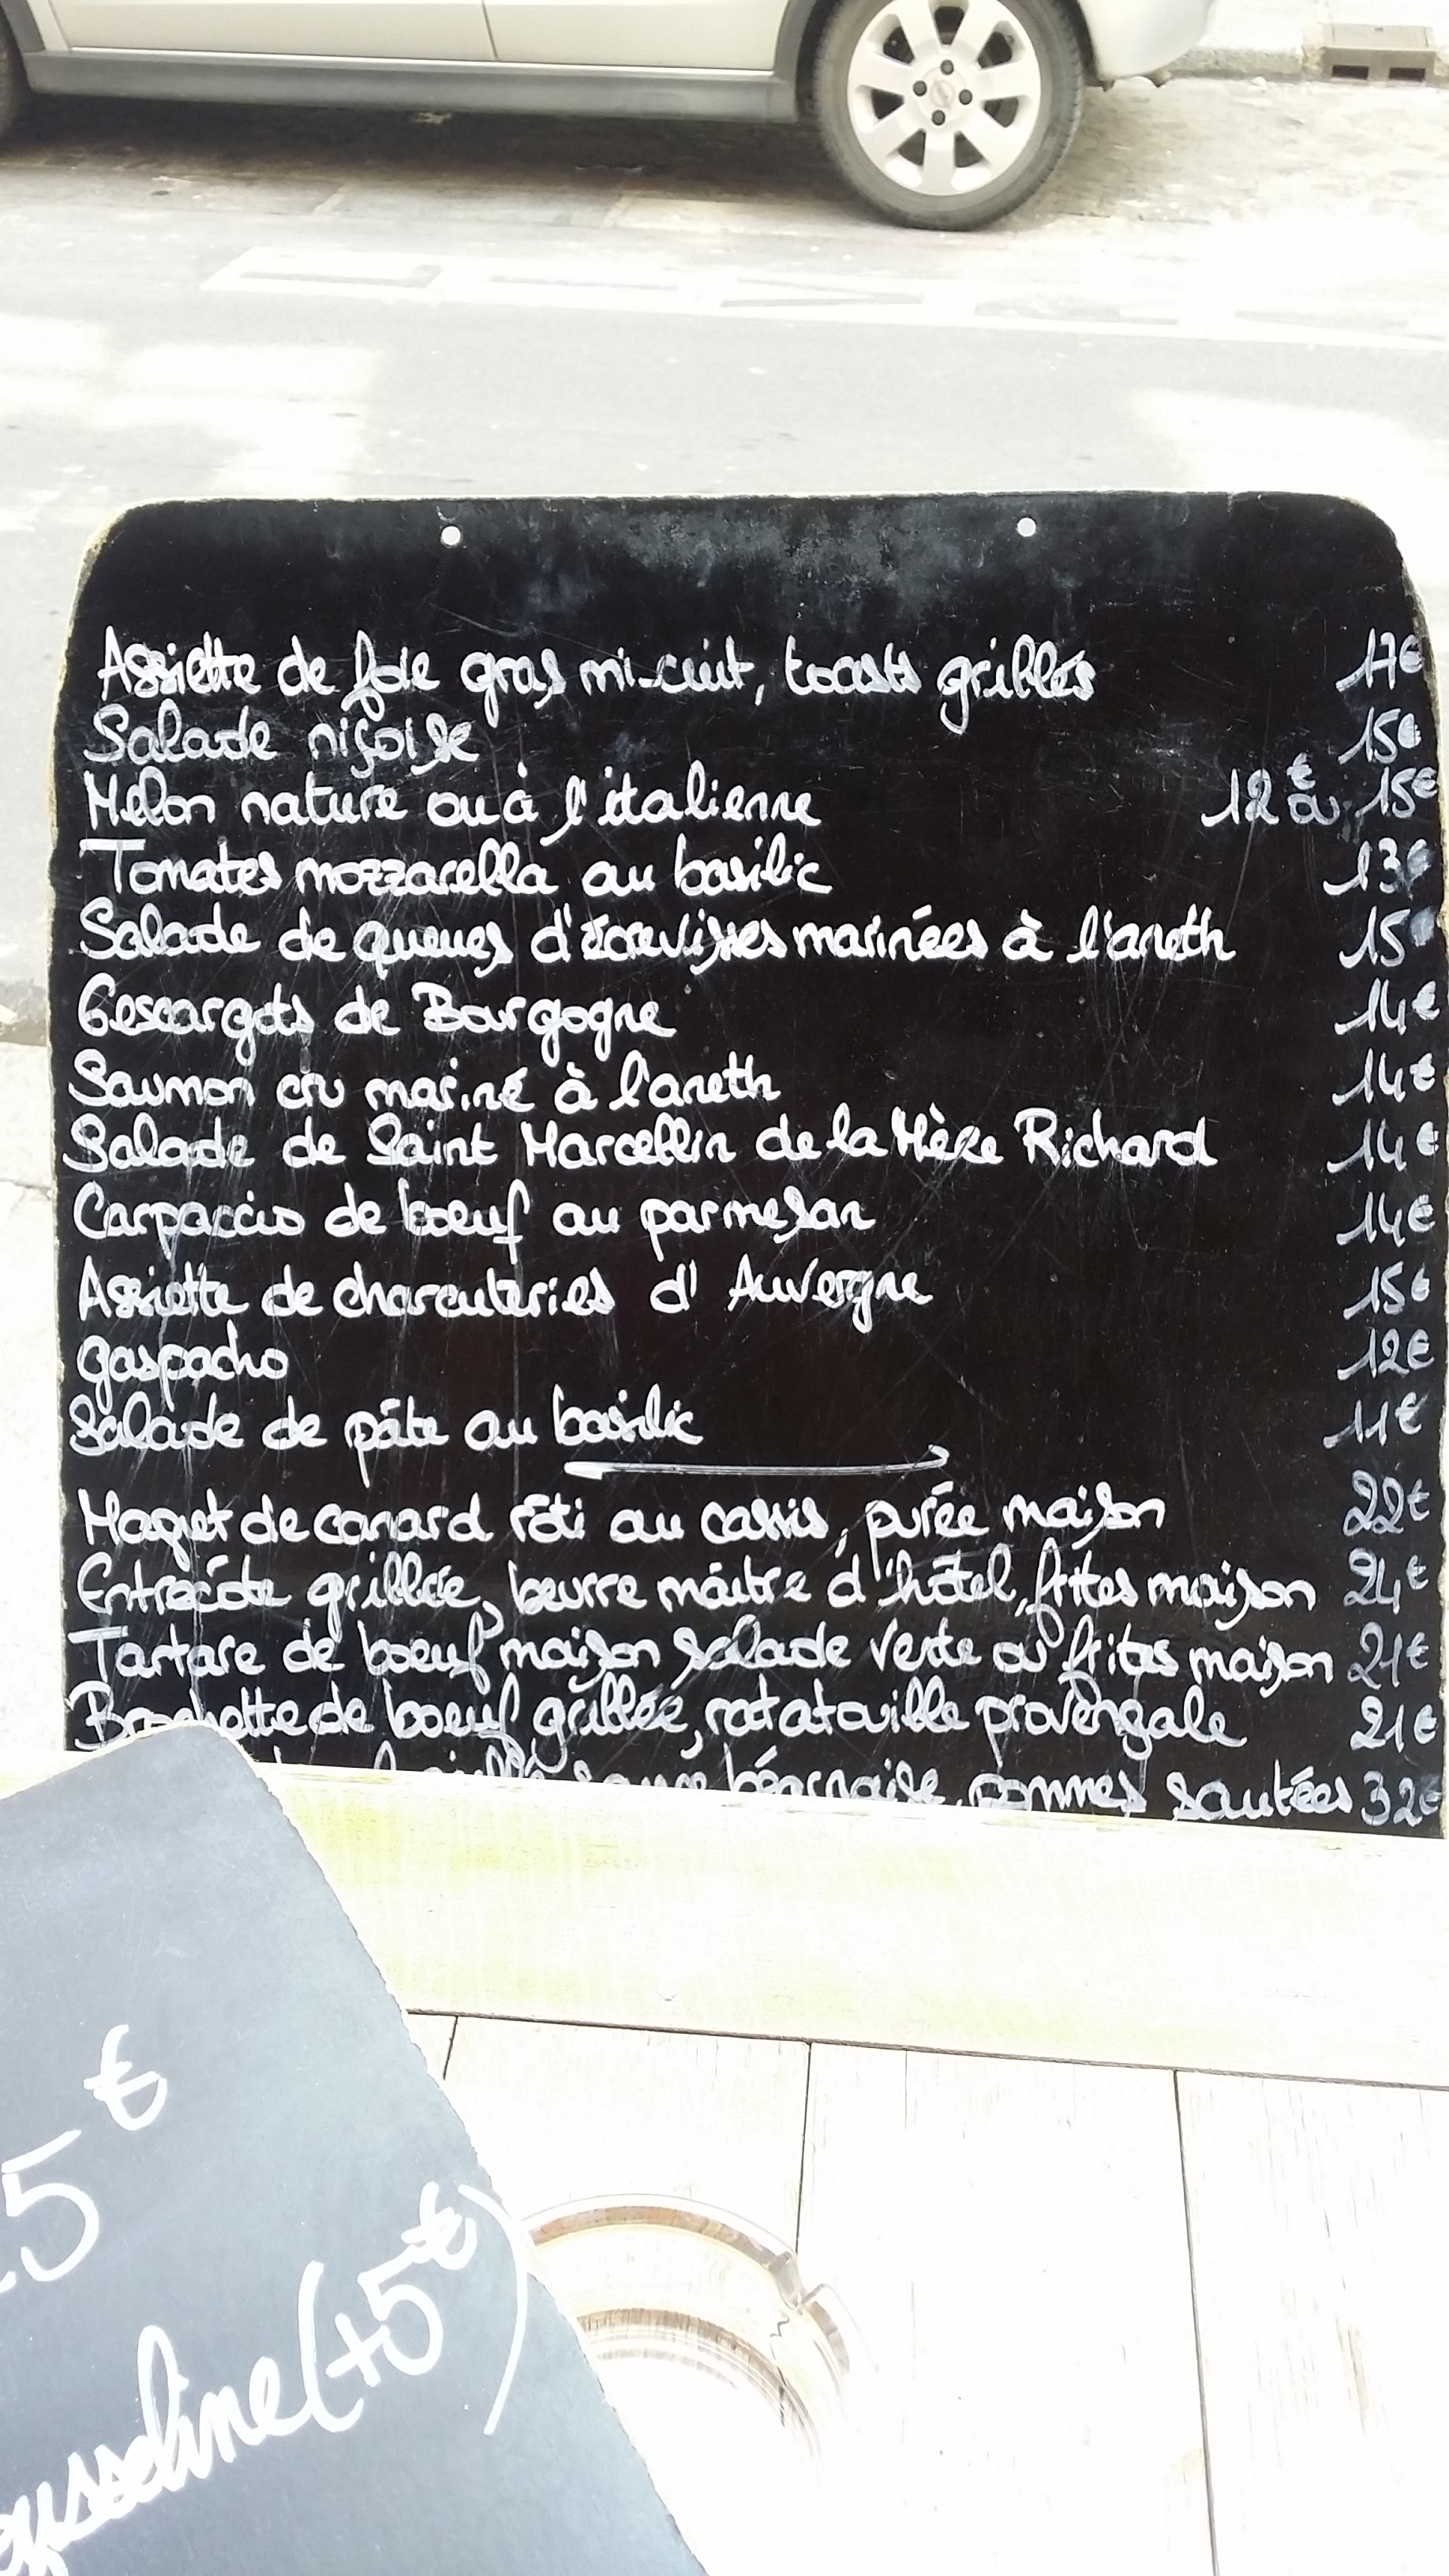 Assiette de foie gras mi-cuit, toasts grillés 17€
Salade niçoise 15€
Melon nature ou à l'italienne 12€ ou 15€
Tomates mozzarella au basilic 13€
Salade de queues d'écrevisses marinées à l'aneth 15
6 escargots de Bourgogne 14€
Saumon cru mariné à l'aneth 14€
Salade de Saint Marcellin de la Mère Richard 14€
Carpaccio de boeuf au parmesan 14€
Assiette de charcuteries d'Auvergne 15€
gaspacho 12€
Salade de pâte au basilic 11€
Magret de canard rôti au cassis, purée maison 22€
Entrecôte grillée, beurre maître d'hôtel, frites maison 24€
Tartare de boeuf maison salade verte ou frites maison 21€
Brochette de boeuf grillée, ratatouille provençale 21€
sauce béarnaise, pommes sautées 32€
5€
(+5€)